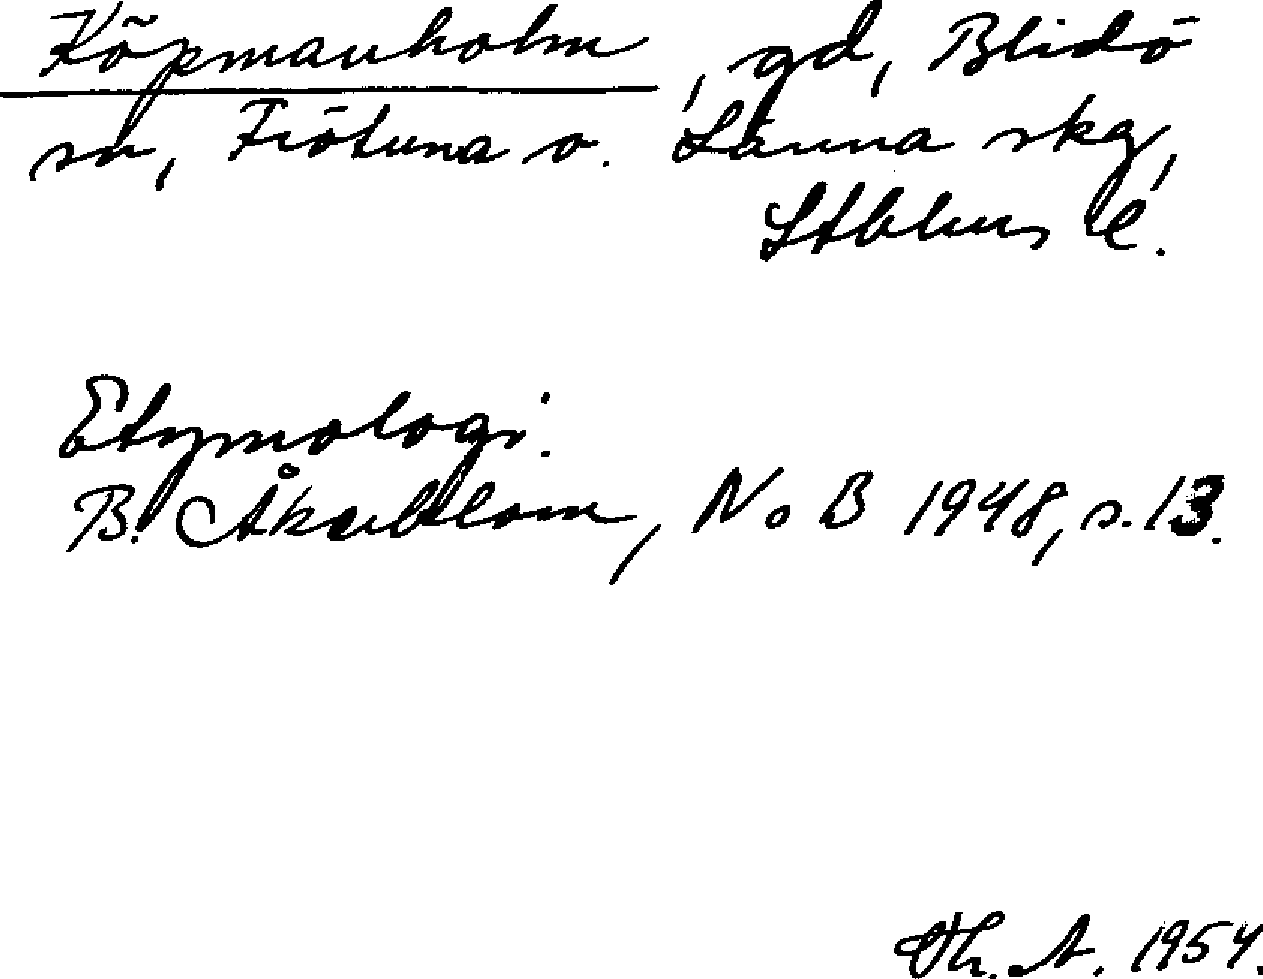 Köpmanholm, gd, Blidö
sn, Frötuna o. Länna skg,
Stblms l.
Etymologi.
B. Åkerblom, NoB 1948, s. 13.
Th. A. 1954.